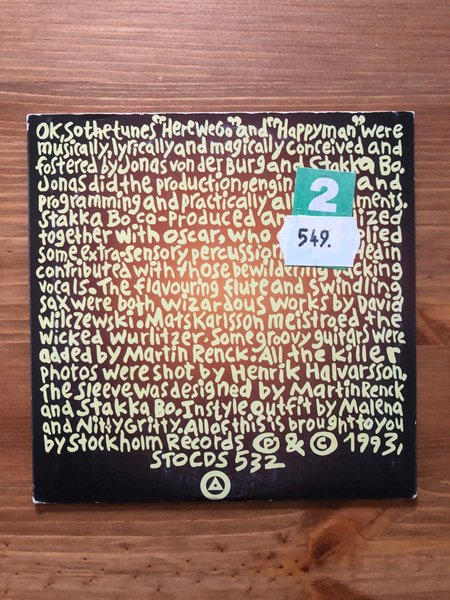 OK, So the tunes "Here We Go" and "Happy man" were
musically, lyrically and magically conceived and
fostered by Jonas von der Burg and Stakka Bo.
Jonas did the production, engin and
programming and practically a ments.
Stakka Bo co-produced an ized
together with Oscar, who plied
some extra-sensory percussion ein
contributed with those bewild cking
vocals. The flavouring flute and swindling
sax were both wizardous works by David
Wilczewski. Mats Karlsson meistroed the
wicked wurlitzer. Some groovy guitars were
added by Martin Renck. All the killer
photos were shot by Henrik Halvarsson,
The sleeve was designed by Martin Renck
and Stakka Bo. Instyle outfit by Malena
and Nitty Gritty. All of this is brought to you
by Stockholm Records ℗ & © 1993,
STOCDS 532
2
549.